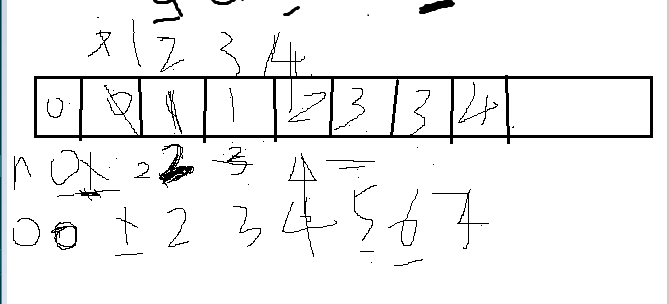 1 2 3 4
0 0 1 1 2 3 3 4
n 0 1 2 2 3 4
0 0 1 2 3 4 5 6 7